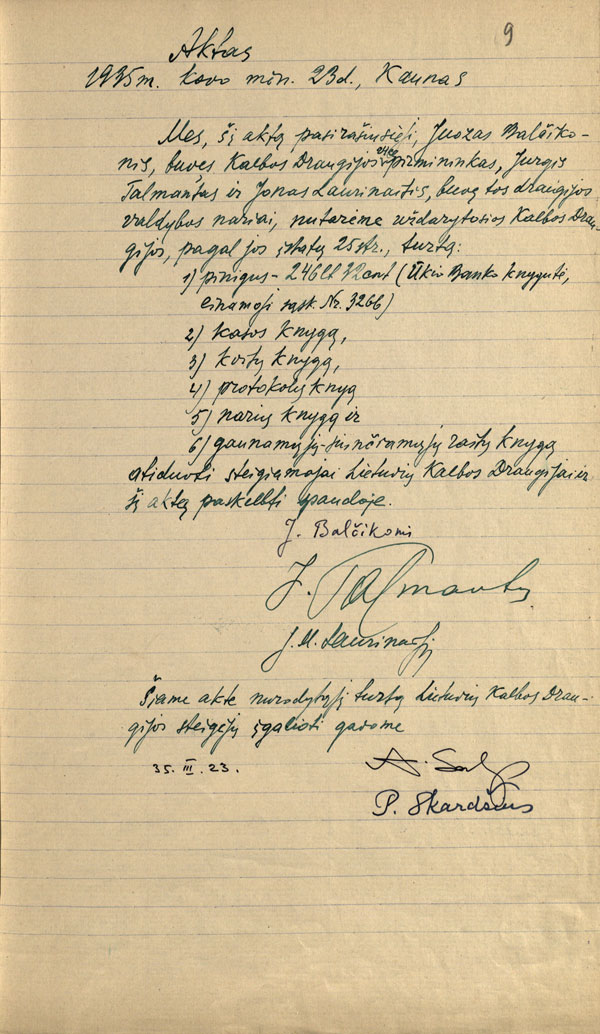 9
Aktas
1935 m. kovo mėn. 23 d., Kaunas
Mes, šį aktą pasirašiusieji, Juozas Balčiko-
nis, buvęs Kalbos Draugijos vice pirmininkas, Jurgis
Talmantas ir Jonas Laurinaitis, buvę tos draugijos
valdybos nariai, nutarėme uždarytosios Kalbos Drau-
gijos, pagal jos įstatų 25 str., turtą:
1) pinigus - 246 lt 72 cent (Ūkio Banko knygutė,
einamoji sąsk. Nr. 3266)
2) kasos knygą,
3) kvitų knygą,
4) protokolų knygą
5) narių knygą ir
6) gaunamųjų-siunčiamųjų raštų knygą
atiduoti steigiamajai Lietuvių Kalbos Draugijai ir
šį aktą paskelbti spaudoje.
J. Balčikonis
J. Talmantas
J. M. Laurinaitis
Šiame akte nurodytąjį turtą Lietuvių Kalbos Drau-
gijos steigėjų įgalioti gavome
35. III. 23.
A. Salys
P. Skardžius